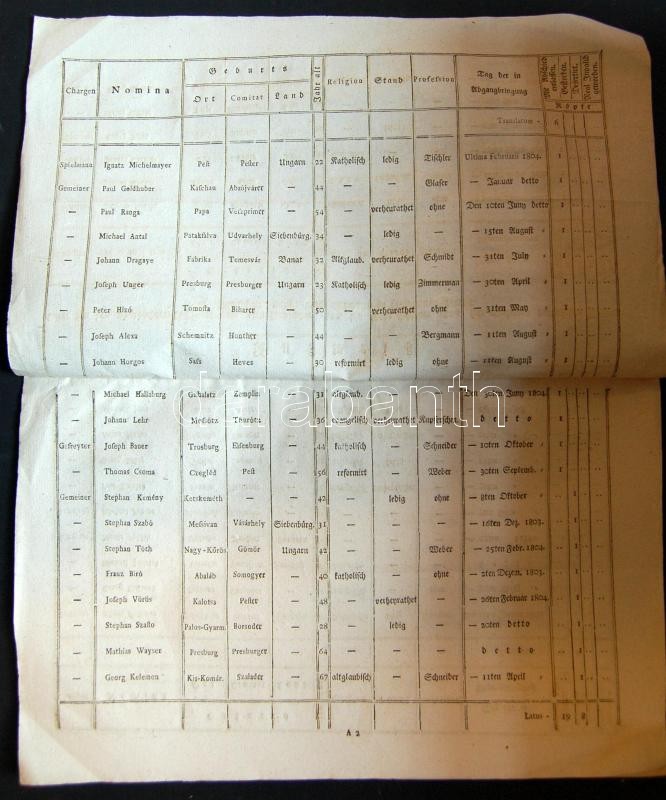 Chargen Nomina Geburts Ort Comitat Land Jahr alt Religion Stand Profession Tag der in Abgangbringung Mit Abschied entlassen. Gestorben. Desertirt. Real Invalid geworden. Köpfe
Translatum - 6 .. .. ..
Spielmann Ignatz Michelmayer Pest Pester Ungarn 22 Katholisch ledig Tischler Ultima Februarii 1804. 1 .. .. ..
Gemeiner Paul Goldhuber Kaschau Abaújvárer — 44 — — Glaser — Januar detto 1 .. .. ..
— Paul Ranga Papa Veszprimer — 54 — verheurathet ohne Den 10ten Juny detto 1 .. .. ..
— Michael Antal Patakfalva Udvarhely Siebenbürg. 34 — ledig — — 15ten August 1 .. .. ..
— Johann Dragaye Fabrika Temesvár Banat 32 Altglaub. verheurathet Schmidt — 31ten July 1 .. .. ..
— Joseph Unger Presburg Presburger Ungarn 23 Katholisch ledig Zimmerman — 30ten April 1 .. .. ..
— Peter Hizó Tomosta Biharer — 50 — verheurathet ohne — 31ten May 1 .. .. ..
— Joseph Alexa Schemnitz Honther — 44 — — Bergmann — 11ten August 1 .. .. ..
— Johann Horgos Sass Heves — 30 reformirt ledig ohne — August 1 .. .. ..
— Michael Hallaburg Zemplin — 31 altglaub. — — Den 30ten Juny 1804. 1 .. .. ..
— Johann Lehr Mossótz Thurótz — 36 evangelisch verheurathet Kupferschm. detto 1 .. .. ..
Gefreyter Joseph Bauer Trosburg Eisenburg — 44 katholisch — Schneider — 10ten Oktober 1 .. .. ..
— Thomas Csoma Czegléd Pest — 56 reformirt — Weber — 30ten Septemb. 1 .. .. ..
Gemeiner Stephan Kemény Ketskeméth — — 42 — ledig ohne — 8ten Oktober .. 1 .. ..
— Stephan Szabó Mesóvan Vásárhely Siebenbürg. 31 — — — — 16ten Dez. 1803. .. 1 .. ..
— Stephan Tóth Nagy-Körös Gömör Ungarn 42 — — Weber — 25ten Febr. 1804. .. 1 .. ..
— Franz Biró Abaláb Somogyer — 40 katholisch — ohne — 2ten Dezem. 1803. .. 1 .. ..
— Joseph Vörös Kalotsa Pester — 48 — verheurathet — — 26ten Februar 1804. .. 1 .. ..
— Stephan Szaflo Palos-Gyarm. Borsoder — 28 — ledig — — 20ten detto .. 1 .. ..
— Mathias Wayser Presburg Presburger — 64 — — — detto .. 1 .. ..
— Georg Kelemen Kis-Komár. Szalader — 67 altglaubisch — Schneider — 11ten April .. 1 .. ..
Latus - 19 8 .. ..
A 2
darabanth